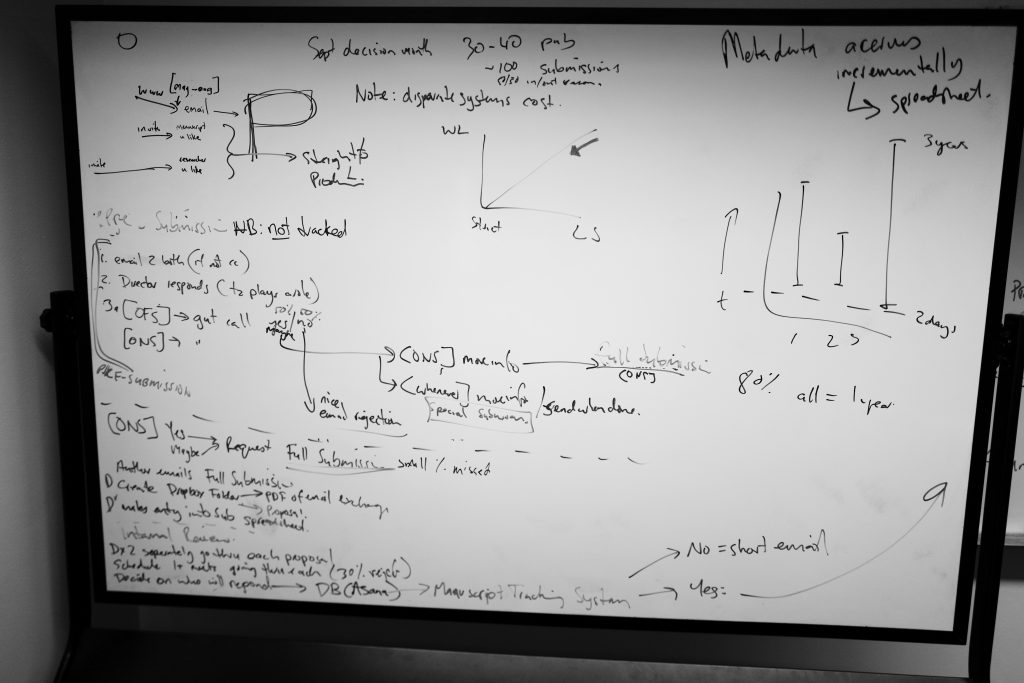 Sept decision month 30-40 pub
~100 submissions
Note: disparate systems cost.
Metadata accrues
incrementally
spreadsheet.
www
email
P
invite manuscript
u like
invite researcher
u like
Straight to
Product
WL
Start
LS
3 years
t
2 days
1 2 3
80% all = 1 year.
Pre-Submission NB: not tracked
1. email 2 both (if not cc)
2. Director responds (tz plays a role)
3. [OFS] → gut call
[ONS] → "
50% 50%
yes/no
maybe
PRE-SUBMISSION
[ONS] more info
Full Submission
[ONS]
[whenever] more info / send when done.
Special Submission.
nice
email rejection
[ONS] Yes
Maybe
Request Full Submission small % missed
Author emails Full Submission
D Create Dropbox Folder → PDF of email exchange
→ Proposal.
D' makes entry into sub spreadsheet.
Internal Review.
Dx2 separately go thru each proposal
Schedule 1+ meets going thru each (30% reject)
Decide on who will respond → DB (Asana) → Manuscript Tracking System
No = short email
Yes: